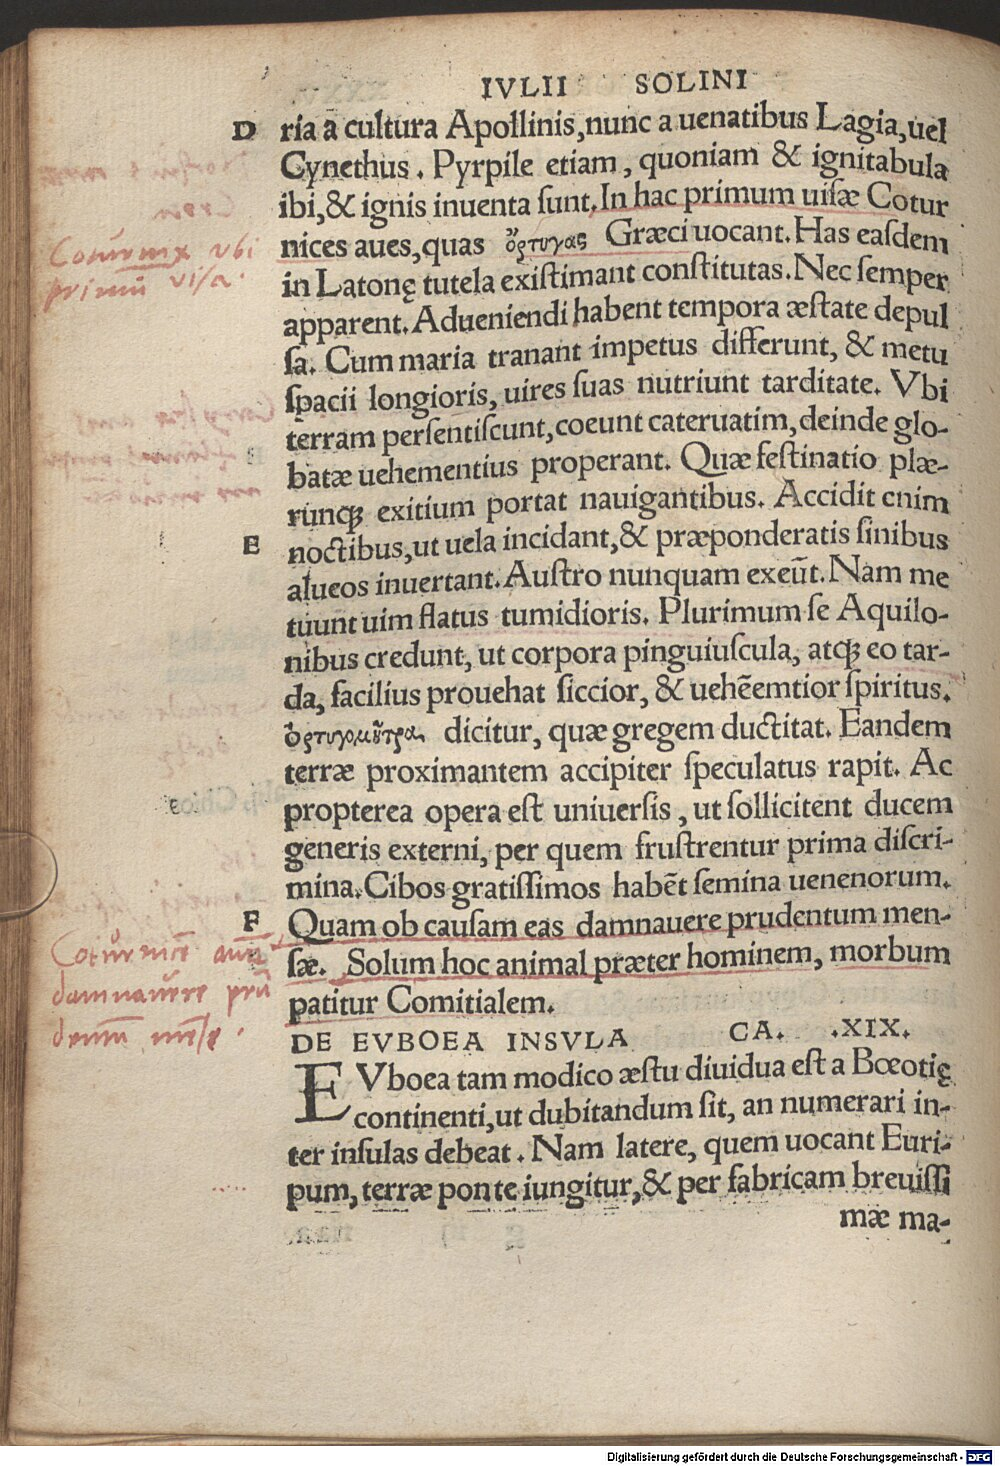 IVLII SOLINI
D ria a cultura Apollinis, nunc a uenatibus Lagia, uel
Cynethus. Pyrpile etiam, quoniam & ignitabula
ibi, & ignis inuenta ſunt. In hac primum uiſæ Cotur
nices aues, quas ὄρτυγας Græci uocant. Has eaſdem
Coturnix vbi
primũ viſa.
in Latonę tutela exiſtimant conſtitutas. Nec ſemper
apparent. Adueniendi habent tempora æſtate depul
ſa. Cum maria tranant impetus differunt, & metu
ſpacii longioris, uires ſuas nutriunt tarditate. Vbi
terram perſentiſcunt, coeunt cateruatim, deinde glo-
batæ uehementius properant. Quæ feſtinatio plæ-
runqꝫ exitium portat nauigantibus. Accidit enim
E noctibus, ut uela incidant, & præponderatis ſinibus
alueos inuertant. Auſtro nunquam exeũt. Nam me
tuunt uim flatus tumidioris. Plurimum ſe Aquilo-
nibus credunt, ut corpora pinguiuſcula, atqꝫ eo tar-
da, facilius prouehat ſiccior, & uehẽemtior ſpiritus.
ὀρτυγομήτρα dicitur, quæ gregem ductitat. Eandem
terræ proximantem accipiter ſpeculatus rapit. Ac
propterea opera eſt uniuerſis, ut ſollicitent ducem
generis externi, per quem fruſtrentur prima diſcri-
mina. Cibos gratiſſimos habẽt ſemina uenenorum.
F Quam ob cauſam eas damnauere prudentum men-
ſæ. Solum hoc animal præter hominem, morbum
patitur Comitialem.
Coturnices
damnauere prũ
dentũ mẽſę.
DE EVBOEA INSVLA CA. .XIX.
EVboea tam modico æſtu diuidua eſt a Bœotię
continenti, ut dubitandum ſit, an numerari in-
ter inſulas debeat. Nam latere, quem uocant Euri-
pum, terræ ponte iungitur, & per fabricam breuiſſi
mæ ma-
Digitalisierung gefördert durch die Deutsche Forschungsgemeinschaft - DFG